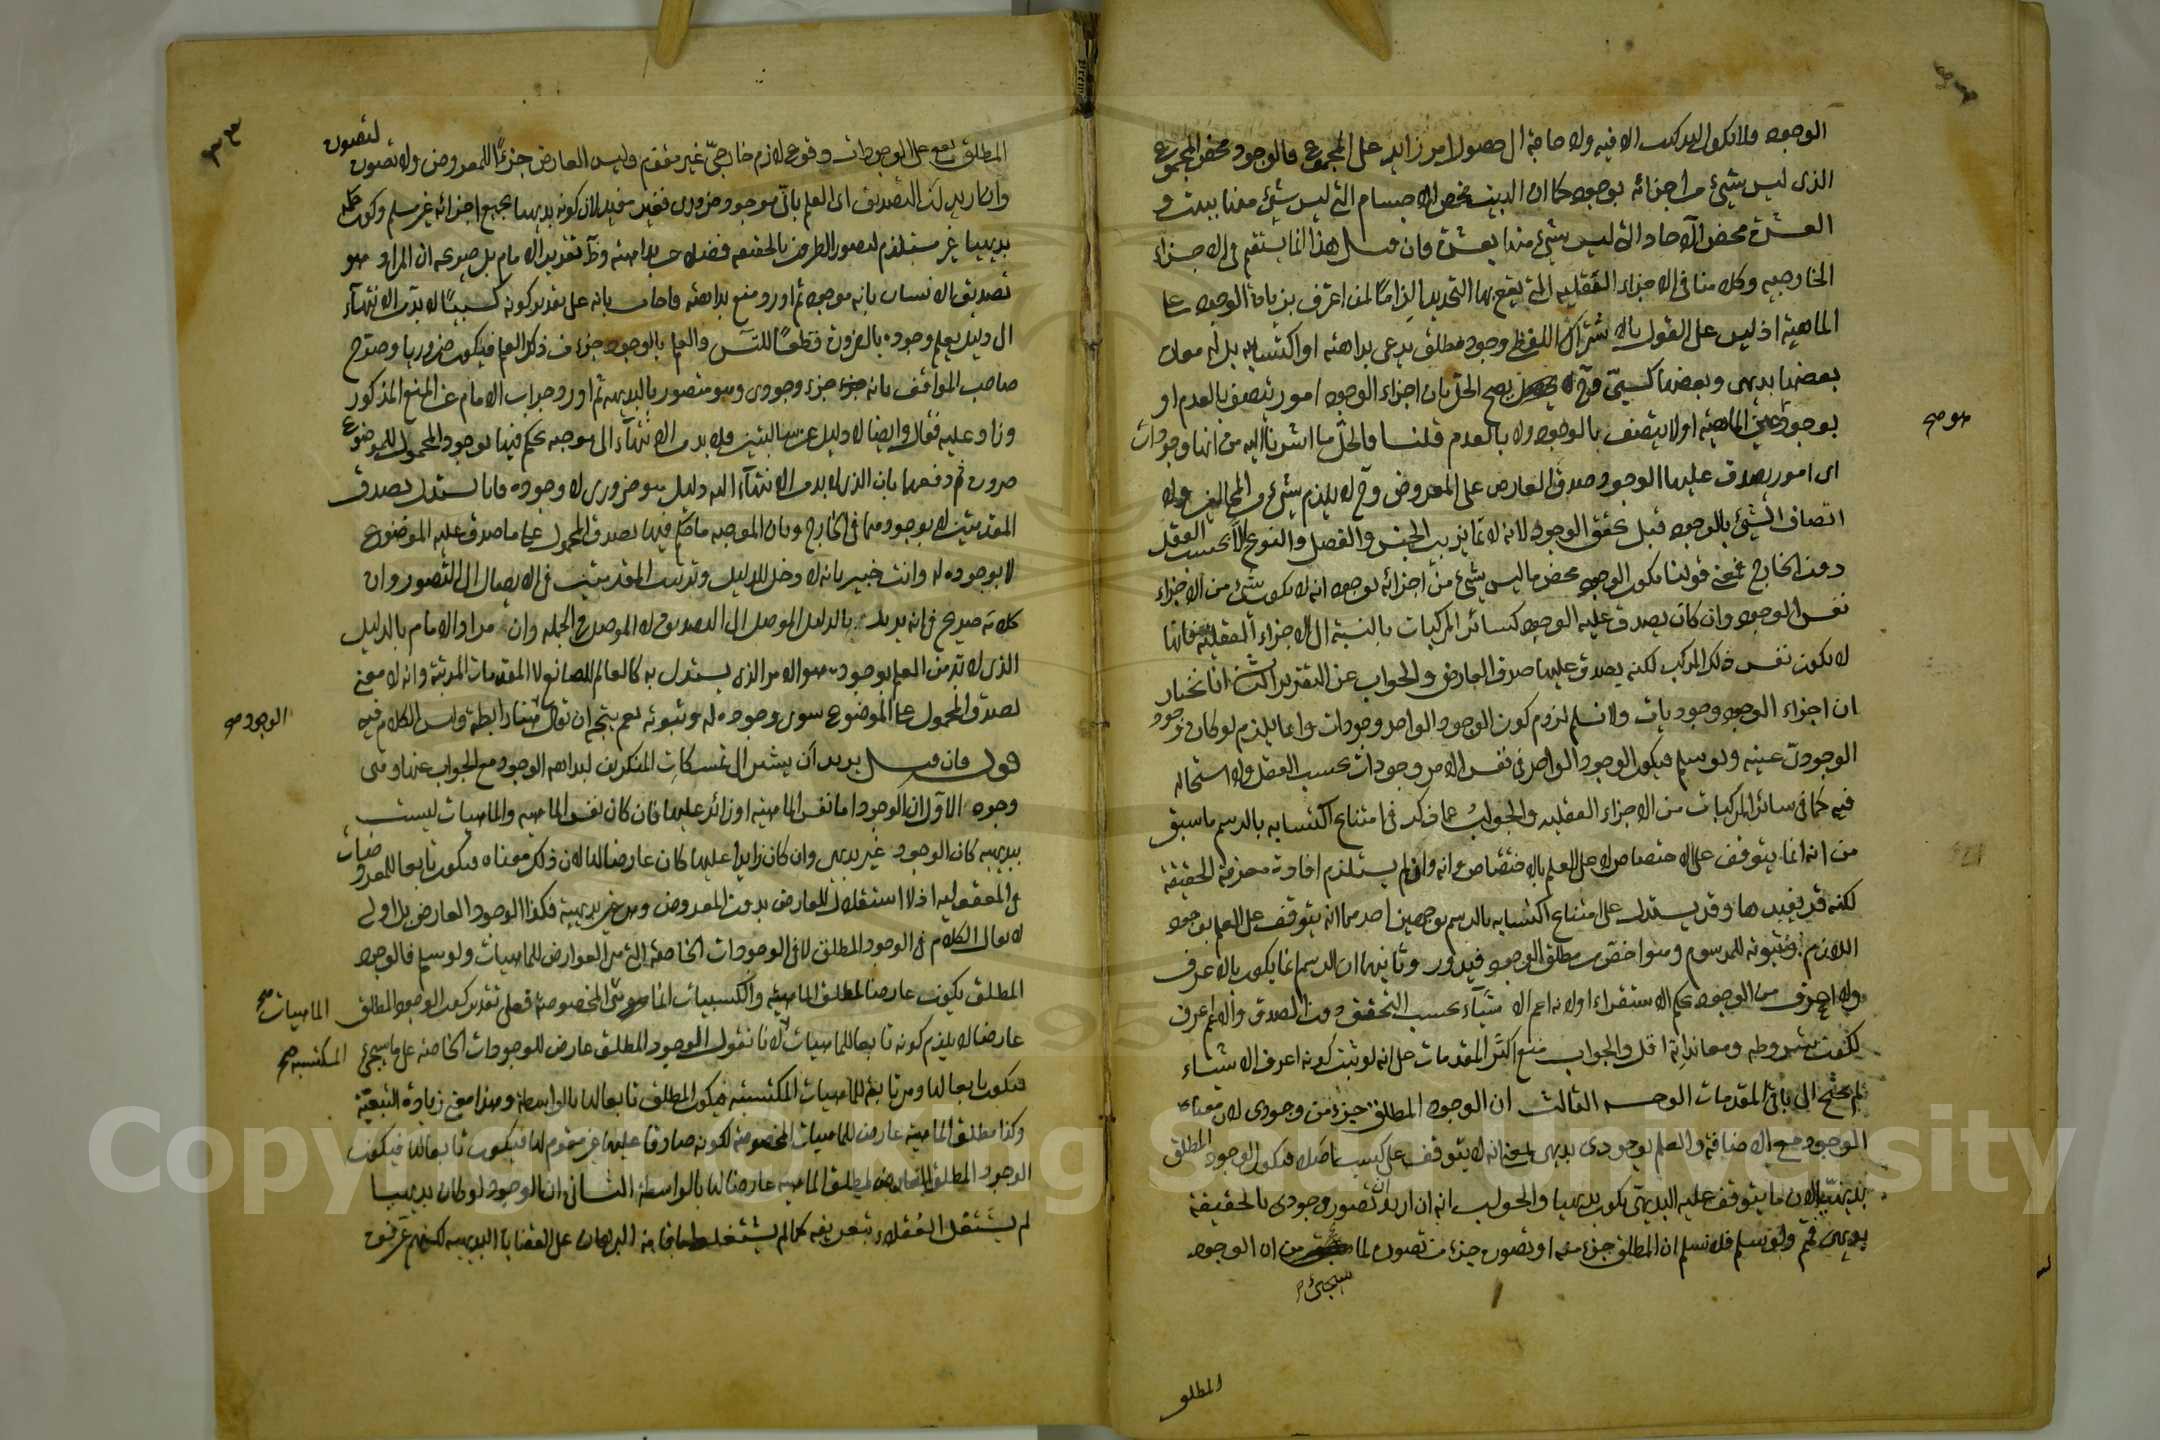 الوجود فلا يكون التركيب الا فيه ولا حاجة الى حصول امر زايد على المجموع فالوجود محض المجموع
الذى ليس شئ من اجزائه بوجود كما ان البيت محض الاجسام التى ليس شئ منها ببيت و
العشرة محض الآحاد التى ليس شئ منها بعشرة فان قيل هذا انما يستقيم فى الاجزاء
الخارجيه وكلامنا فى الاجزاء العقليه التى يقع بها التحديد الزاما لمن اعترف بزيادة الوجود على
الماهية اذ ليس على القول بالاشتراك اللفظى وجود مطلق يدعى بداهته او اكتسابه بل له معان
بعضها بديهى وبعضها كسبى فح لا يصح الحل بان اجزاء الوجود امور تتصف بالعدم او
بوجود هو عين الماهية او لا يتصف بالوجود ولا بالعدم قلنا فالحل ما اشرنا اليه من انها وجودات
هو صح
اى امور يصدق عليها الوجود صدق العارض على المعروض وح لا يلزم شئ من المحالين ولا
اتصاف الشئ بالوجود قبل تحقق الوجود لانه لا تمايز بين الجنس والفصل والنوع الا بحسب العقل
دون الخارج فمعنى قولنا يكون الوجود محض ما ليس شئ من اجزائه بوجود انه لا يكون شئ من الاجزاء
نفس الوجود وان كان يصدق عليه الوجود كسائر المركبات بالنسبة الى الاجزاء العقلية فانها
لا يكون نفس ذلك المركب لكنه يصدق عليها صدق العارض والجواب عن التقرير الثانى انا نختار
ان اجزاء الوجود وجوديات ولا نسلم لزوم كون الوجود الواحد وجودات وانما يلزم لو كان وجود
الوجودى عينه ولو سلم فيكون الوجود الواحد فى نفس الامر وجودات بحسب العقل ولا استحاله
فيه كما فى سائر المركبات من الاجزاء العقليه والجواب عما ذكر فى امتناع اكتسابه بالرسم ما سبق
من انه انما يتوقف على الاختصاص لا على العلم بالاختصاص وانه وان لم يستلزم افادة معرفة الحقيقة
لكنه قد يفيدها وقد يستدل على امتناع اكتسابه بالرسم بوجهين احدهما انه يتوقف على العلم بوجود
اللازم وثبوته للمرسوم وهو اخص من مطلق الوجود فيدور وثانيهما ان الرسم انما يكون بالاعرف
ولا اعرف من الوجود بحكم الاستقراء او لانه اعم الاشياء بحسب التحقق دون الصدق والاعم اعرف
لكون شروطه ومعانداته اقل والجواب منع اكثر المقدمات على انه لو ثبت كونه اعرف الاشياء
لم يحتج الى باقى المقدمات الوجه الثالث ان الوجود المطلق جزء من وجودى لان معناه
الوجود مع الاضافة والعلم بوجودى بديهى بمعنى انه لا يتوقف على كسب اصلا فيكون الوجود المطلق
بديهيا لان ما يتوقف عليه البديهى يكون بديهيا والجواب انه ان اريد ان تصور وجودى بالحقيقة
بديهى فمم ولو سلم فلا نسلم ان المطلق جزء منه او تصوره جزء من تصوره لما سيجئ من ان الوجود
المطلق
المطلق يقع على الوجودات وقوع لازم خارجى غير مقوم وليس العارض جزءا للمعروض ولا تصوره لتصوره
وان اريد ان التصديق اى العلم بانى موجود ضرورى فغير مفيد لان كونه بديهيا بجميع اجزائه غير مسلم وكون حكمه
بديهيا غير مستلزم لتصور الطرفين بالحقيقه فضلا عن بداهته وظ تقدير الامام بل صريحه ان المراد هو
تصديق الانسان بانه موجود ثم اورد منع بداهته فاجاب بانه على تقدير كونه كسبيا لا بد من الانتهاء
الى دليل يعلم وجوده بالضرورة قطعا للتس والعلم بالوجود جزء من ذلك العلم فيكون ضروريا وصرح
صاحب المواقف بانه جزء وجودى وهو متصور بالبديهه ثم اورد جواب الامام عن المنع المذكور
وزاد عليه فقال وايضا لا دليل عن سالبتين فلا بد من الانتهاء الى موجبه يحكم فيها بوجود المحمول للموضوع
ضرورة ثم دفعها بان الذى لا بد من الانتهاء اليه دليل هو ضرورى لا وجوده فانا نستدل بصدق
المقدمتين لا بوجودهما فى الخارج وبان الموجبه ما حكم فيها بصدق المحمول على ما صدق عليه الموضوع
لا بوجوده له وانت خبير بانه لا دخل للدليل وترتيب المقدمتين فى الايصال الى التصور وان
كلامه صريح فى انه يريد بالدليل الموصل الى التصديق لا الموصل فى الجمله وان مراد الامام بالدليل
الذى لا بد من العلم بوجوده هو الامر الذى يستدل به كالعالم للصانع لا المقدمات المرتبة وانه لا معنى
لصدق المحمول على الموضوع سوى وجوده له وثبوته نعم يتجه ان يقال هذا رابطة وليس الكلام فيه
الوجود صح
قول فان قيل يريد ان يشير الى تمسكات المنكرين لبداهة الوجود مع الجواب عنها وهى
وجوه الاول ان الوجود اما نفس الماهية او زائد عليها فان كان نفس الماهيه والماهيات ليست
ببديهيه كان الوجود غير بديهى وان كان زايدا عليها كان عارضا لها لان ذلك معناه فيكون تابعا للمعروضات
فى المعقوليه اذ لا استقلال للعارض بدون المعروض وهى غير بديهية فكذا الوجود العارض بل اولى
لا يقال الكلام فى الوجود المطلق لا فى الوجودات الخاصة التى هى العوارض للماهيات ولو سلم فالوجود
المطلق يكون عارضا لمطلق الماهية والكسبيات انما هو شئ المخصوصة فعلى تقدير كون الوجود المطلق
الماهيات صح
عارضا لا يلزم كونه تابعا للماهيات لانا نقول الوجود المطلق عارض للوجودات الخاصة على ما سيجئ
المكتسبه صح
فيكون تابعا لها وهى تابعة للماهيات المكتسبة فيكون المطلق تابعا لها بالواسطة وهذا معنى زيادة التبعية
وكذا مطلق الماهية عارض للماهيات المخصوصة لكونه صادقا عليها غير مقوم لها فيكون تابعا لها فيكون
الوجود المطلق العارض لمطلق الماهيه عارضا لها بالواسطة الثانى ان الوجود لو كان بديهيا
لم يشتغل العقلاء بتعريفه كما لم يشتغلوا باقامة البرهان على القضايا البديهيه لكنهم عرفوه